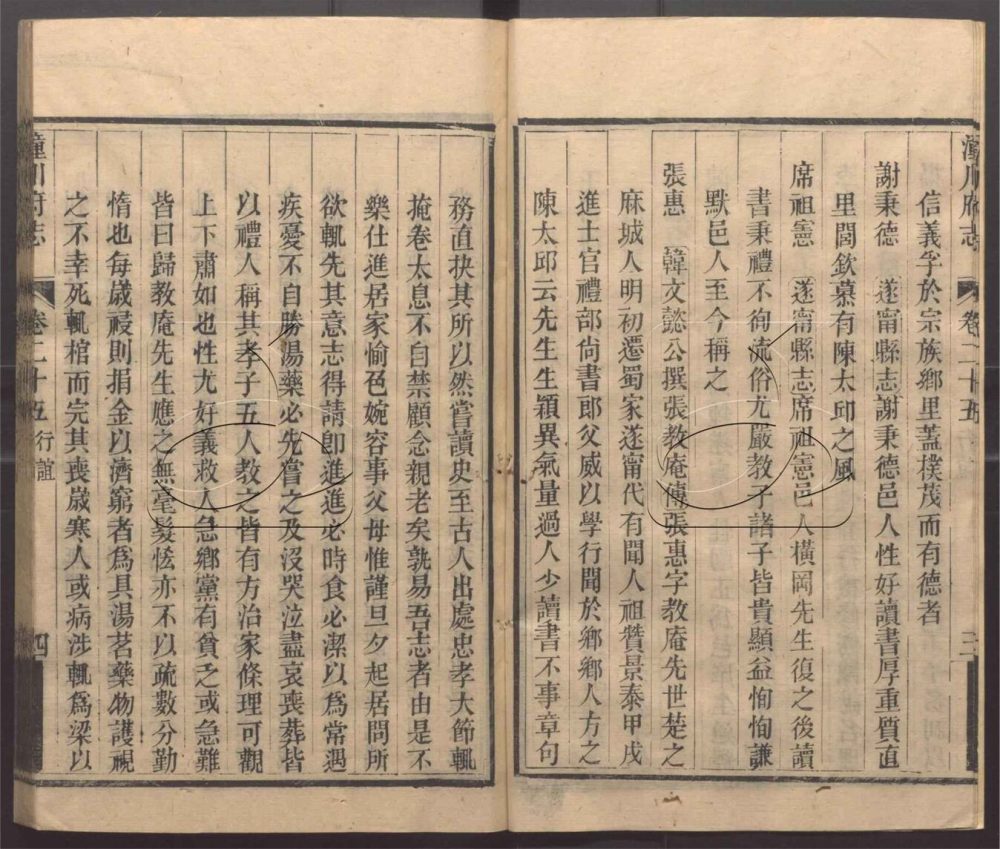 潼川府志 卷二十五 三
信義孚於宗族鄉里蓋樸茂而有德者
謝秉德 遂甯縣志謝秉德邑人性好讀書厚重質直
里閭欽慕有陳太邱之風
席祖憲 遂甯縣志席祖憲邑人橫岡先生復之後讀
書秉禮不徇流俗尤嚴教子諸子皆貴顯益恂恂謙
默邑人至今稱之
張惠 韓文懿公撰張教庵傳張惠字教庵先世楚之
麻城人明初遷蜀家遂甯代有聞人祖贊景泰甲戌
進士官禮部尙書郎父威以學行聞於鄉鄉人方之
陳太邱云先生生穎異氣量過人少讀書不事章句
務直抉其所以然嘗讀史至古人出處忠孝大節輒
掩卷太息不自禁顧念親老矣孰易吾志者由是不
樂仕進居家愉色婉容事父母惟謹旦夕起居問所
欲輒先其意志得請卽進進必時食必潔以爲常遇
疾憂不自勝湯藥必先嘗之及沒哭泣盡哀喪葬皆
以禮人稱其孝子五人教之皆有方治家條理可觀
上下肅如也性尤好義救人急鄉黨有貧乏或急難
皆曰歸教庵先生應之無毫髮恡亦不以疏數分勤
惰也每歲祲則捐金以濟窮者爲具湯茗藥物護視
之不幸死輒棺而完其喪歲寒人或病涉輒爲梁以
潼川府志 卷二十五 行誼 四